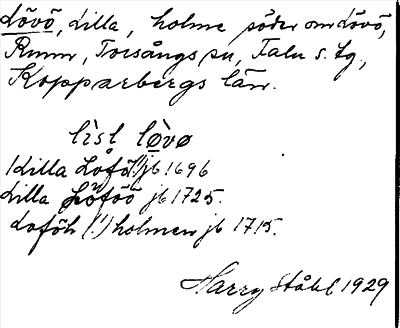 Lövö, Lilla, holme söder om Lövö,
Runn, Torsångs sn, Falu s. tg,
Kopparbergs län.
lìsl lø̀vø
Lilla Lofö(!) jb 1696
Lilla Löföö jb 1725.
Loföh (!) holmen jb 1715.
Harry Ståhl 1929